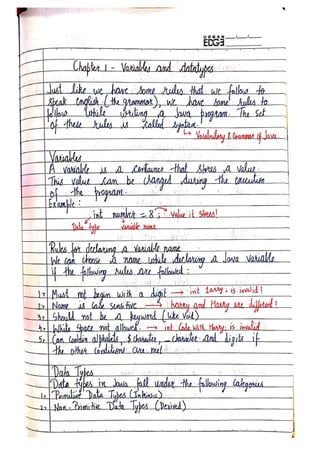 EDGE
Chapter 1 - Variables and datatypes
Just like we have some rules that we follow to
speak english (the grammar), we have some rules to
follow while writing a Java program. The set
of these rules is called syntax.
→ Vocabulary & Grammar of Java.
Variables
A variable is a container that stores a value.
This value can be changed during the execution
of the program.
Example :
int number = 8 ; → Value it stores!
Data type variable name
Rules for declaring a variable name
We can choose a name while declaring a Java variable
if the following rules are followed :
1→ Must not begin with a digit → int 1arry; is invalid!
2→ Name is case sensitive → harry and Harry are different!
3→ Should not be a keyword (like Void)
4→ White space not allowed. → int Code with Harry; is invalid
5→ Can contain alphabets, $ character, _ character and digits if
the other conditions are met
Data Types
Data types in Java fall under the following categories
1→ Primitive Data Types (Intrinsic)
2→ Non-Primitive Data Types (Derived)